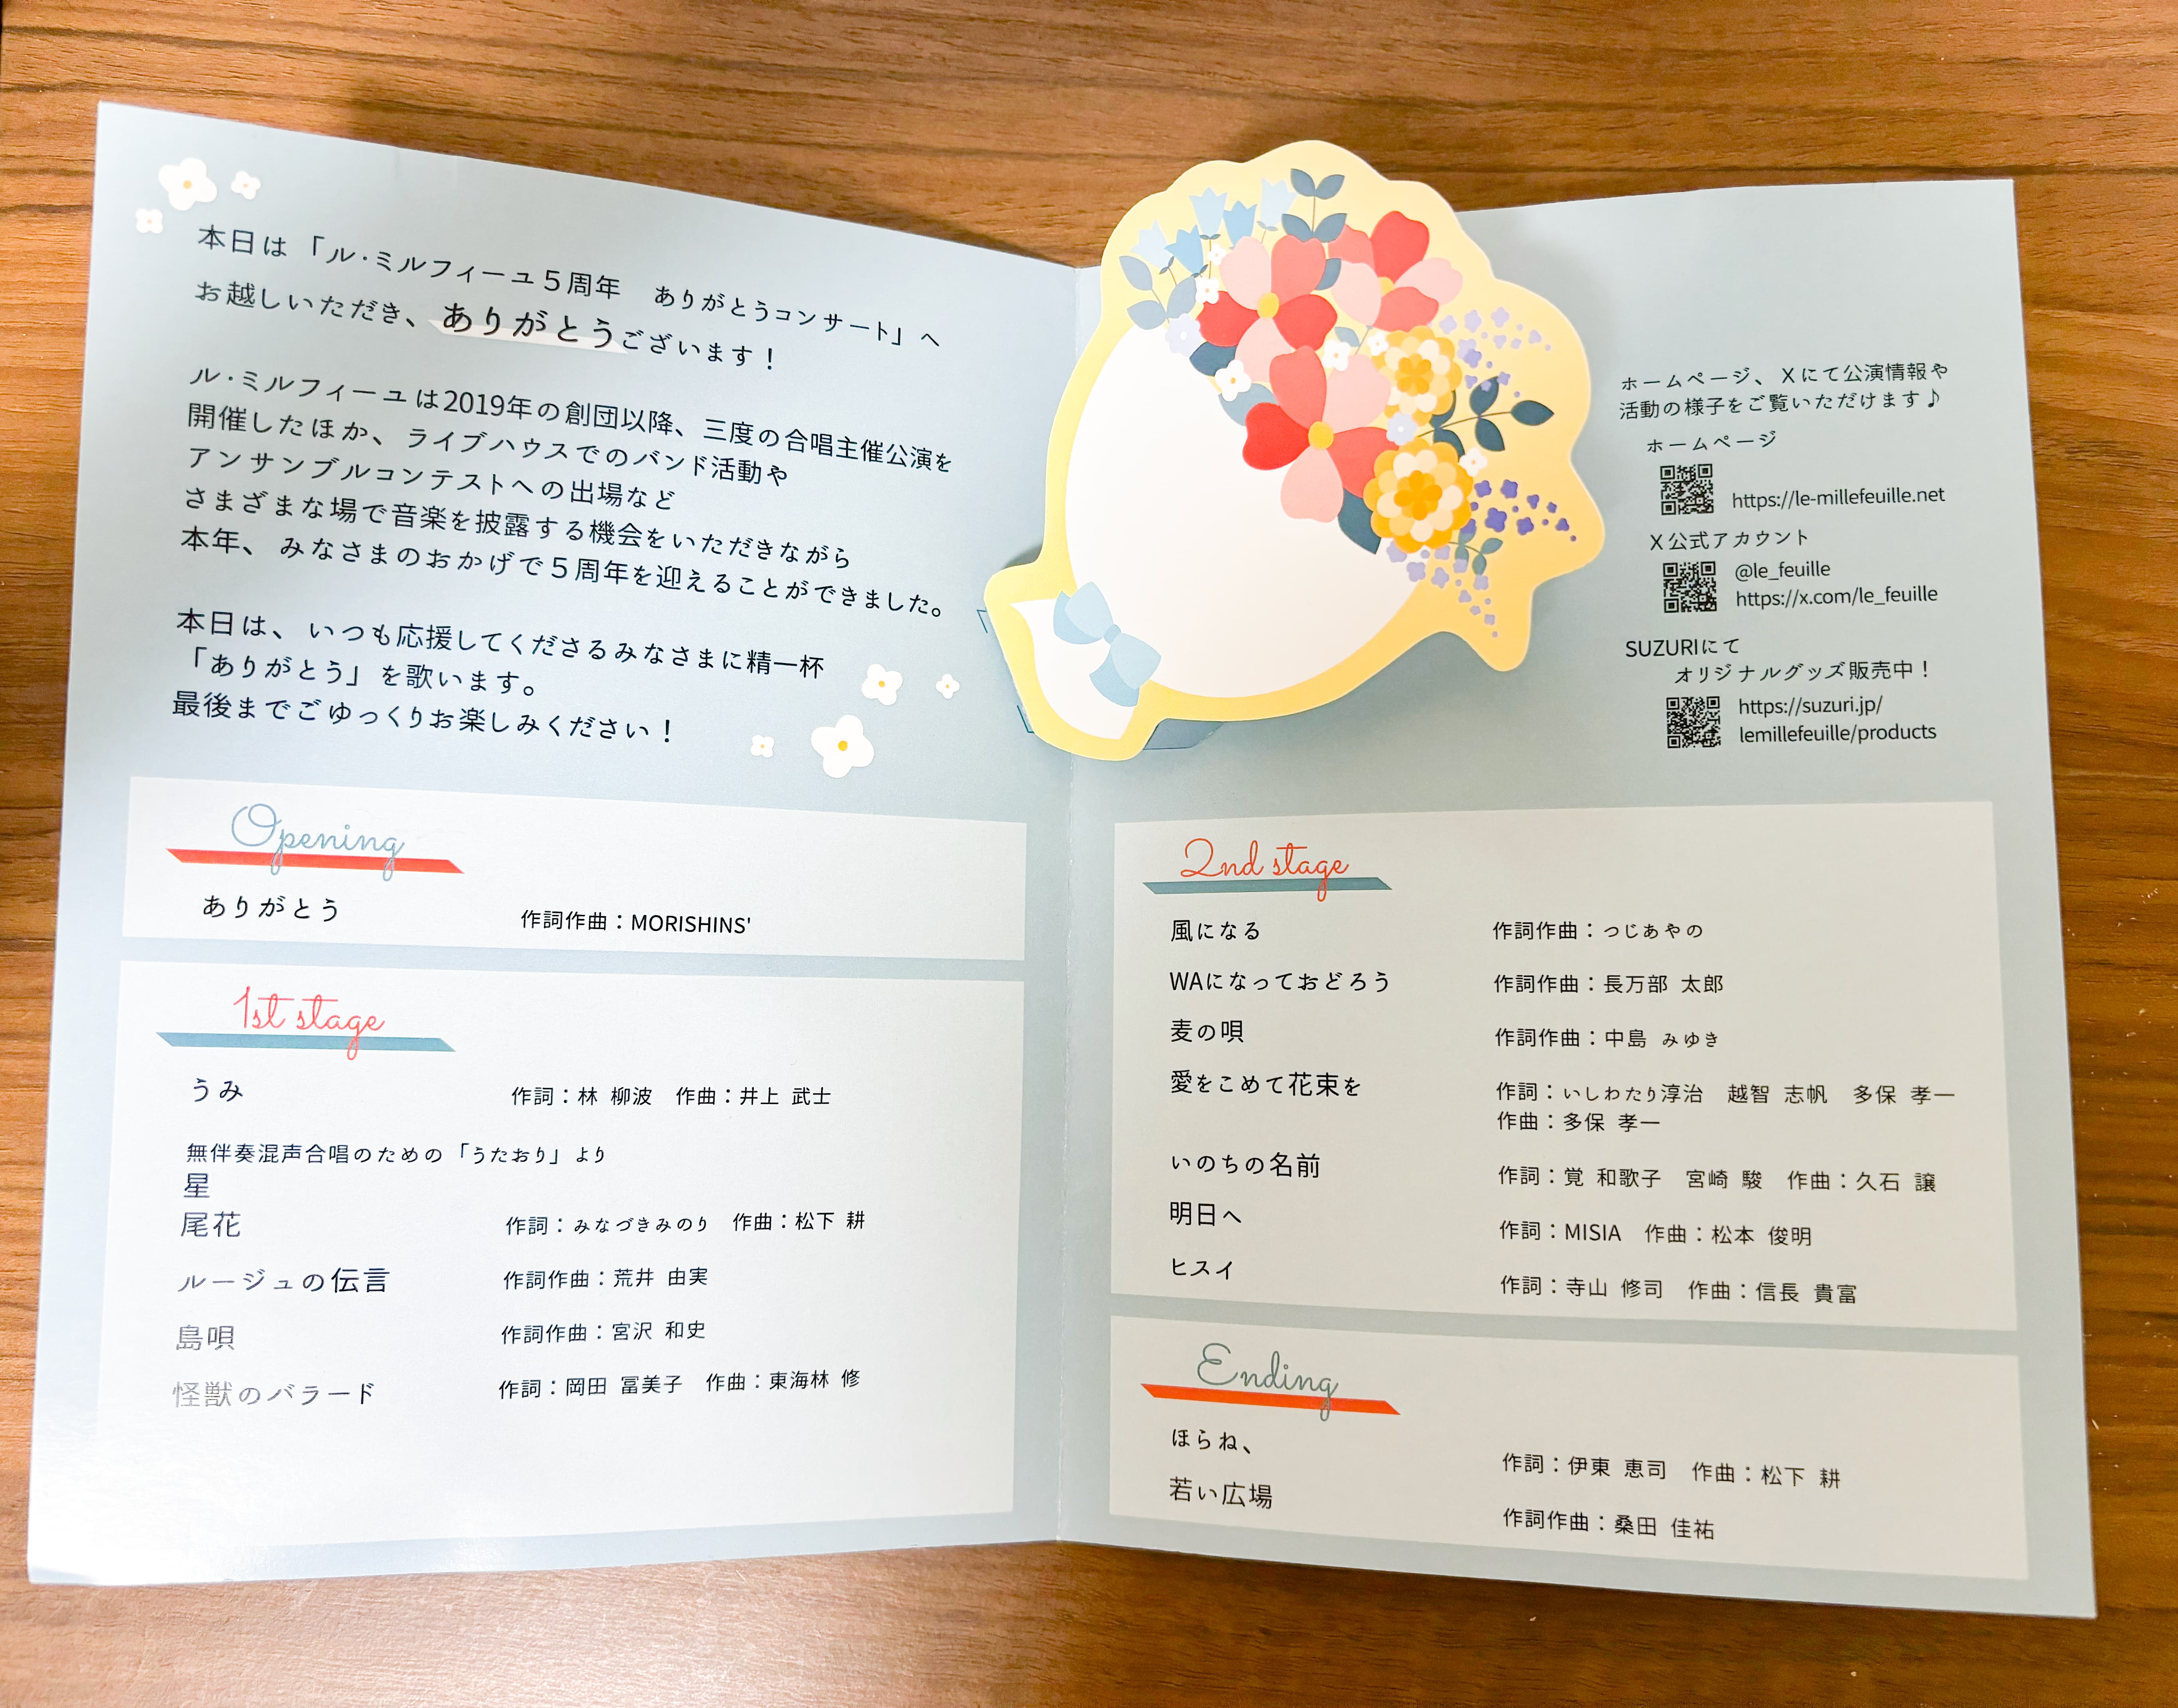 本日は「ル・ミルフィーユ5周年　ありがとうコンサート」へ
お越しいただき、ありがとうございます！
ル・ミルフィーユは2019年の創団以降、三度の合唱主催公演を
開催したほか、ライブハウスでのバンド活動や
アンサンブルコンテストへの出場など
さまざまな場で音楽を披露する機会をいただきながら
本年、みなさまのおかげで5周年を迎えることができました。
本日は、いつも応援してくださるみなさまに精一杯
「ありがとう」を歌います。
最後までごゆっくりお楽しみください！
Opening
ありがとう　作詞作曲：MORISHINS'
1st stage
うみ　作詞：林 柳波　作曲：井上 武士
無伴奏混声合唱のための「うたおり」より
星
尾花　作詞：みなづきみのり　作曲：松下 耕
ルージュの伝言　作詞作曲：荒井 由実
島唄　作詞作曲：宮沢 和史
怪獣のバラード　作詞：岡田 冨美子　作曲：東海林 修
ホームページ、Xにて公演情報や
活動の様子をご覧いただけます♪
ホームページ
https://le-millefeuille.net
X公式アカウント
@le_feuille
https://x.com/le_feuille
SUZURIにて
オリジナルグッズ販売中！
https://suzuri.jp/
lemillefeuille/products
2nd stage
風になる　作詞作曲：つじあやの
WAになっておどろう　作詞作曲：長万部 太郎
麦の唄　作詞作曲：中島 みゆき
愛をこめて花束を　作詞：いしわたり淳治　越智 志帆　多保 孝一
作曲：多保 孝一
いのちの名前　作詞：覚 和歌子　宮崎 駿　作曲：久石 譲
明日へ　作詞：MISIA　作曲：松本 俊明
ヒスイ　作詞：寺山 修司　作曲：信長 貴富
Ending
ほらね、　作詞：伊東 恵司　作曲：松下 耕
若い広場　作詞作曲：桑田 佳祐